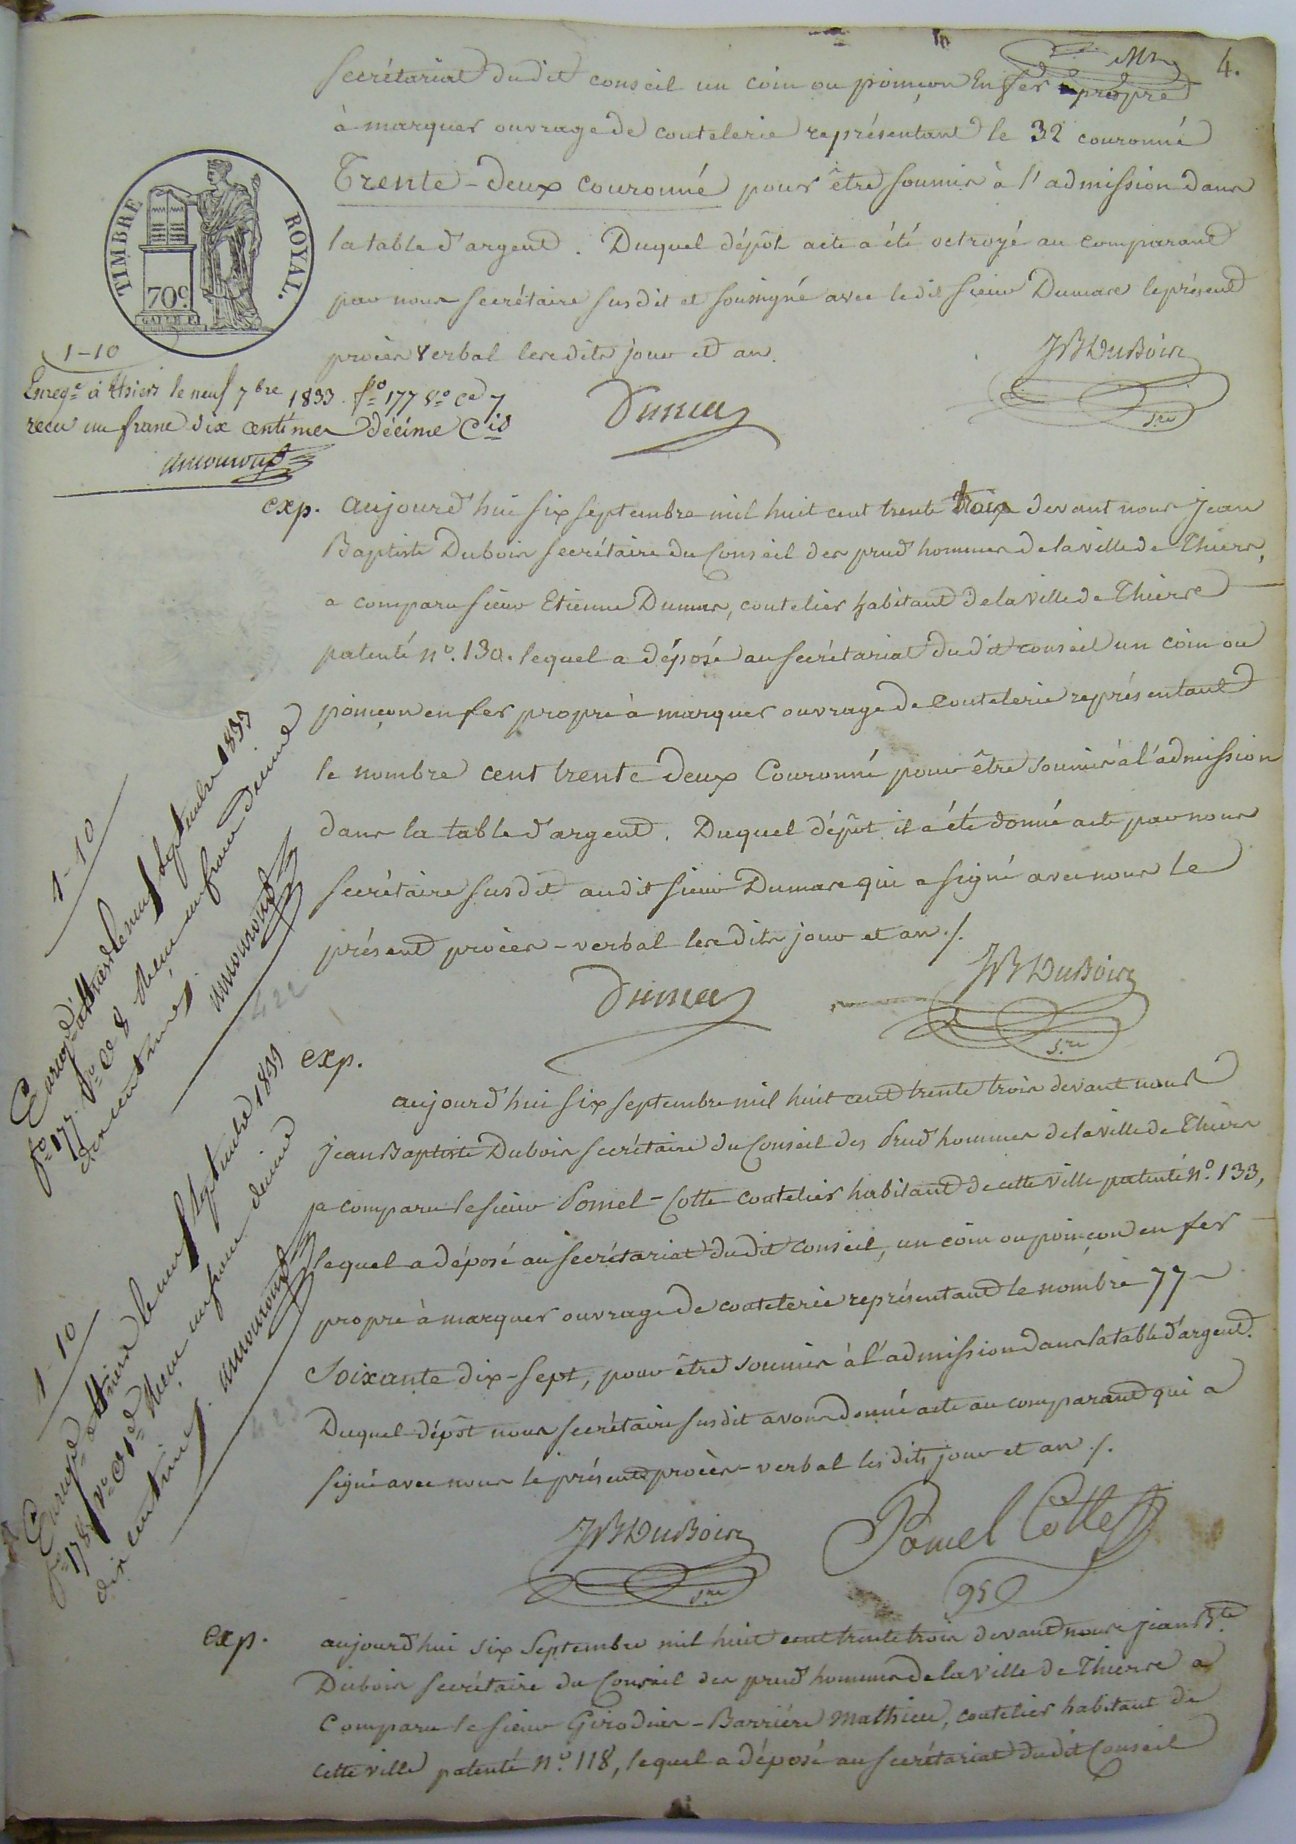 4.
secrétariat dudit conseil un coin ou poinçon en fer propre
à marquer ouvrage de coutelerie représentant le 32 couronné
Trente-deux couronné pour être soumis à l'admission dans
la table d'argent. Duquel dépôt acte a été octroyé au comparant
par nous secrétaire susdit et soussigné avec le dit sieur Dumas le présent
procès verbal les dits jour et an.
TIMBRE ROYAL.
70c.
JB DuBois
Sre
Dumas
1-10
Enregé à Thiers le neuf 7bre 1833. fo 177 Vo Ce 7
recu un franc dix centimes décime Cis
exp. aujourd'hui six septembre mil huit cent trente trois devant nous jean
Baptiste Dubois secrétaire du Conseil des prud'hommes de la ville de Thiers,
a comparu sieur Etienne Dumas, coutelier habitant de la ville de Thiers
patenté no. 130. lequel a déposé au secrétariat du dit conseil un coin ou
poinçon en fer propre à marquer ouvrage de coutelerie représentant
le nombre cent trente deux Couronné pour être soumis à l'admission
dans la table d'argent. Duquel dépôt il a été donné acte par nous
secrétaire susdit audit sieur Dumas qui a signé avec nous le
présent procès-verbal les dits jour et an ./.
Dumas
JB DuBois
Sre
1-10
Enregé à Thiers le neuf septembre 1833
fo 177 Vo Ce 8 Reçu un franc décime
dix centimes.
422
exp.
aujourd'hui six septembre mil huit cent trente trois devant nous
jean Baptiste Dubois secrétaire du Conseil des Prud'hommes de la ville de Thiers
a comparu le sieur Pomel-Cotte coutelier habitant de cette ville patenté No. 133,
lequel a déposé au secrétariat du dit conseil, un coin ou poinçon en fer
propre à marquer ouvrage de coutelerie représentant le nombre 77
Soixante dix-sept, pour être soumis à l'admission dans la table d'argent.
Duquel dépôt nous secrétaire susdit avons donné acte au comparant qui a
signé avec nous le présent procès-verbal les dits jour et an ./.
1-10
Enregé à Thiers le neuf septembre 1833
fo 178 Vo Ce 1er Reçu un franc décime
dix centimes.
423
JB DuBois
Sre
Pomel Cotte
exp. aujourd'hui six Septembre mil huit cent trente trois devant nous jean Bte
Dubois secrétaire du Conseil des prud'hommes de la ville de Thiers a
Comparu le sieur Girodias-Barrière Mathieu, coutelier habitant de
cette ville patenté No. 118, lequel a déposé au secrétariat du dit Conseil